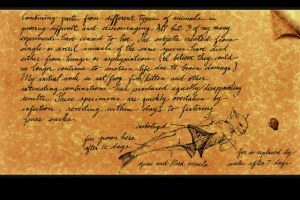 Combining parts from different types of animals is
proving difficult and discouraging. All but 3 of my many
experiments have ceased to live. The subjects created from
single or several animals of the same species have died
either from hunger or asphyxiation. (I believe they could
no longer continue to sustain life due to brain damage.)
My initial work in rat/frog, fish/kitten and other
interesting combinations has produced equally disappointing
results. These specimens are quickly overtaken by
infection, revolting within days to festering
puss sacks.
fur grows here
after 12 days
veins and blood vessels
fur is replaced by
water after 7 days